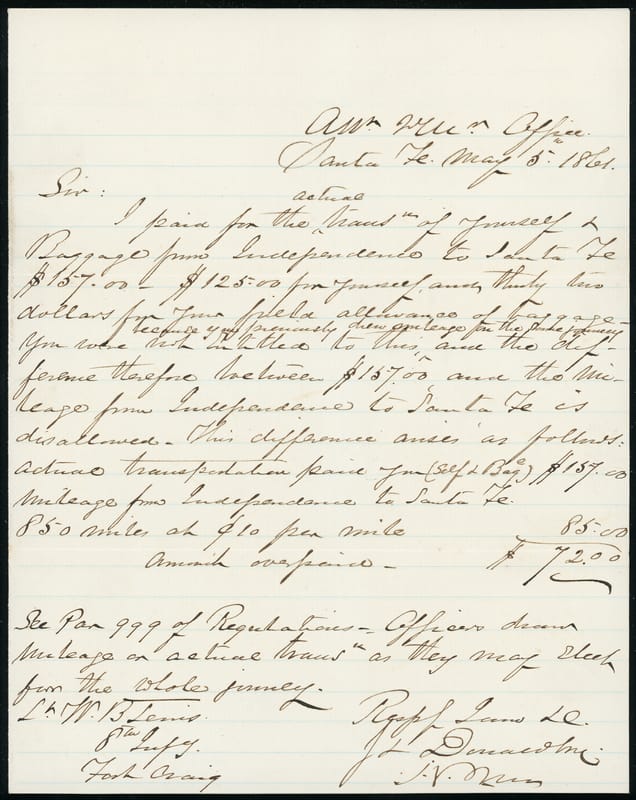 Office.
Santa Fe. May 5th 1861.
Sir:
actual
I paid for the trans'tn of yourself &
Baggage from Independence to Santa Fe
$157.00 - $125.00 for yourself, and thirty two
dollars for your field allowance of baggage -
because you previously drew mileage for the same journey
You were not entitled to this, and the dif-
ference therefore between $157.00 and the mi-
leage from Independence to Santa Fe is
disallowed - This difference arises as follows:
actual transportation paid you (Self & Bage) $157.00
Mileage from Independence to Santa Fe.
850 miles at ¢10 per mile 85.00
Amount overpaid - $72.00
See Par 999 of Regulations - Officers draw
Mileage or actual transtn as they may elect
for the whole journey.
Lt W. B. Lewis Respy
8th Infy. Donaldson
Fort Craig